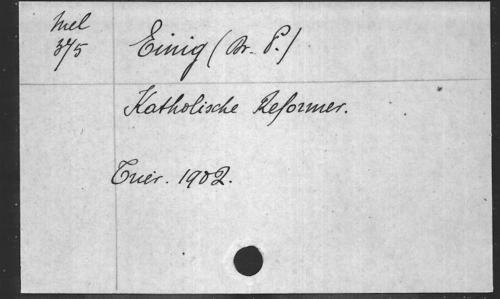 Mel
375
Einig (Dr. P.)
Katholische Reformer.
Trier. 1902.